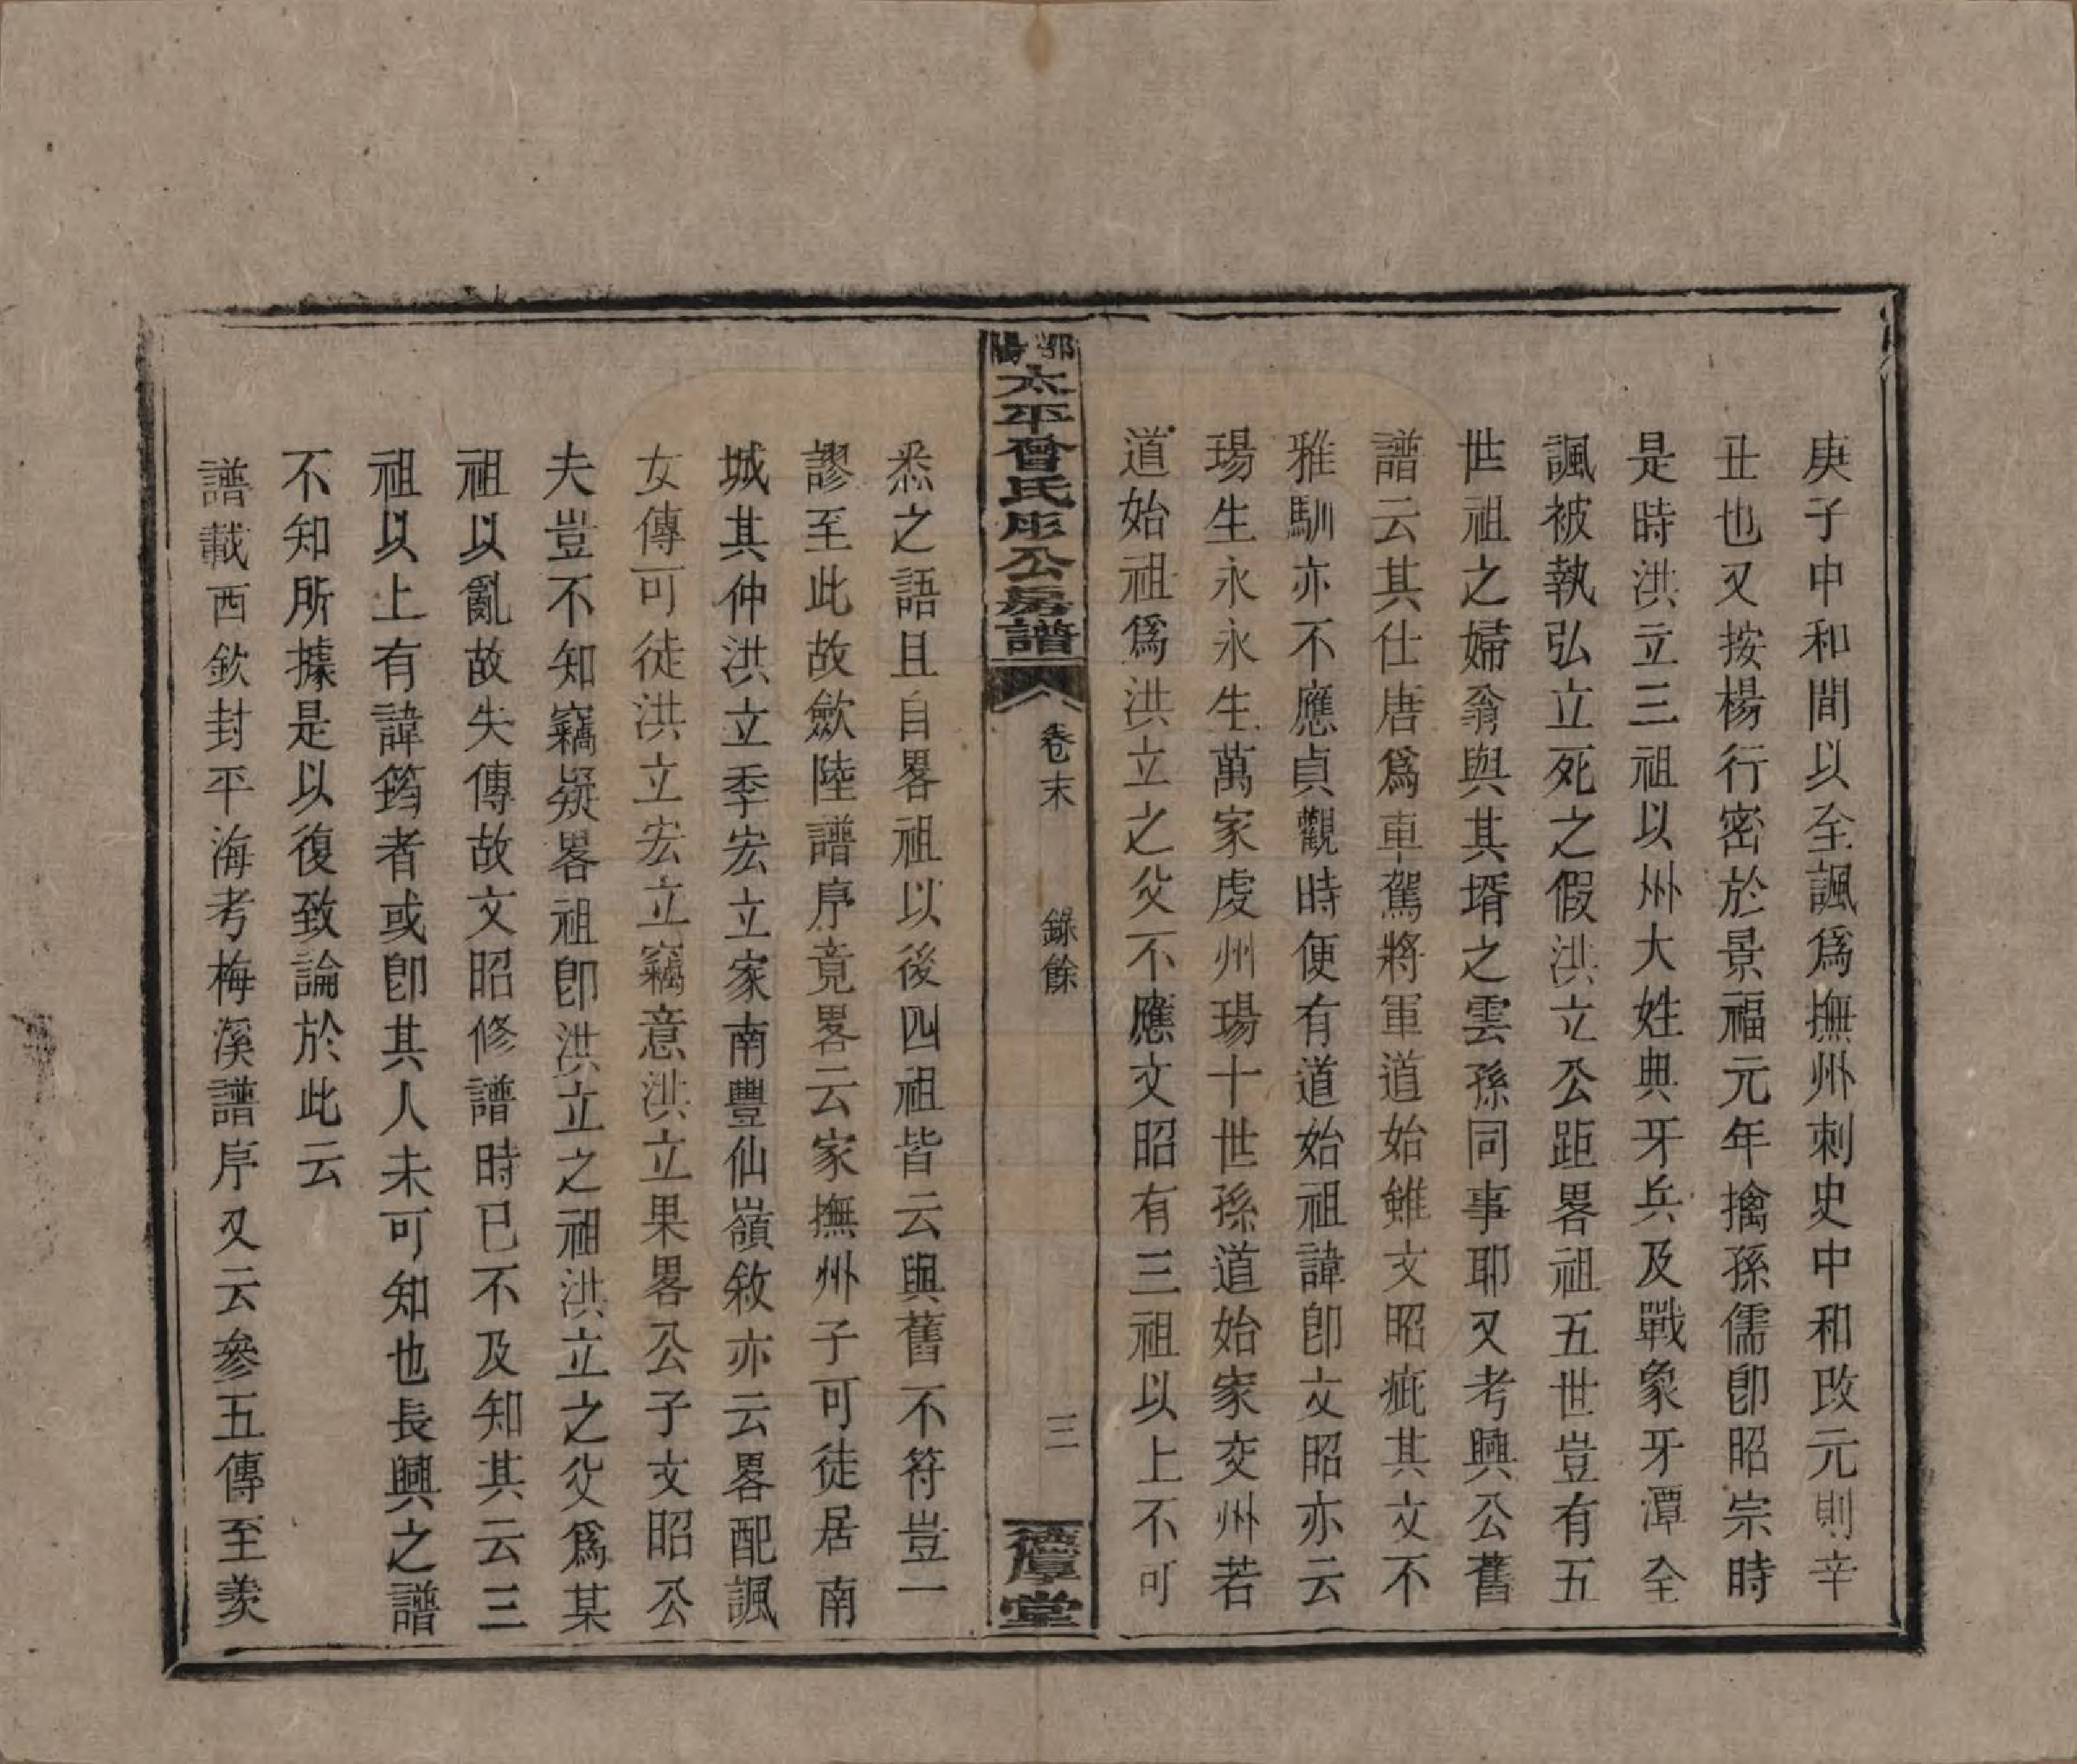 庚子中和間以至諷爲撫州刺史中和改元則辛
丑也又按楊行密於景福元年擒孫儒卽昭宗時
是時洪立三祖以州大姓典牙兵及戰象牙潭全
諷被執弘立死之假洪立公距畧祖五世豈有五
世祖之婦翁與其壻之雲孫同事耶又考興公舊
譜云其仕唐爲車駕將軍道始雖文昭疵其文不
雅馴亦不應貞觀時便有道始祖諱卽文昭亦云
瑒生永永生萬家虔州瑒十世孫道始家交州若
道始祖爲洪立之父不應文昭有三祖以上不可
鄂陽太平曾氏彤公房譜
卷末
錄餘
三
德厚堂
悉之語且自畧祖以後四祖皆云與舊不符豈一
謬至此故歛陸譜序竟畧云家撫州子可徒居南
城其仲洪立季宏立家南豐仙嶺敘亦云畧配諷
女傳可徒洪立宏立竊意洪立果畧公子文昭公
夫豈不知竊疑畧祖卽洪立之祖洪立之父爲某
祖以亂故失傳故文昭修譜時已不及知其云三
祖以上有諱筠者或卽其人未可知也長興之譜
不知所據是以復致論於此云
譜載西欽封平海考梅溪譜序又云參五傳至羨